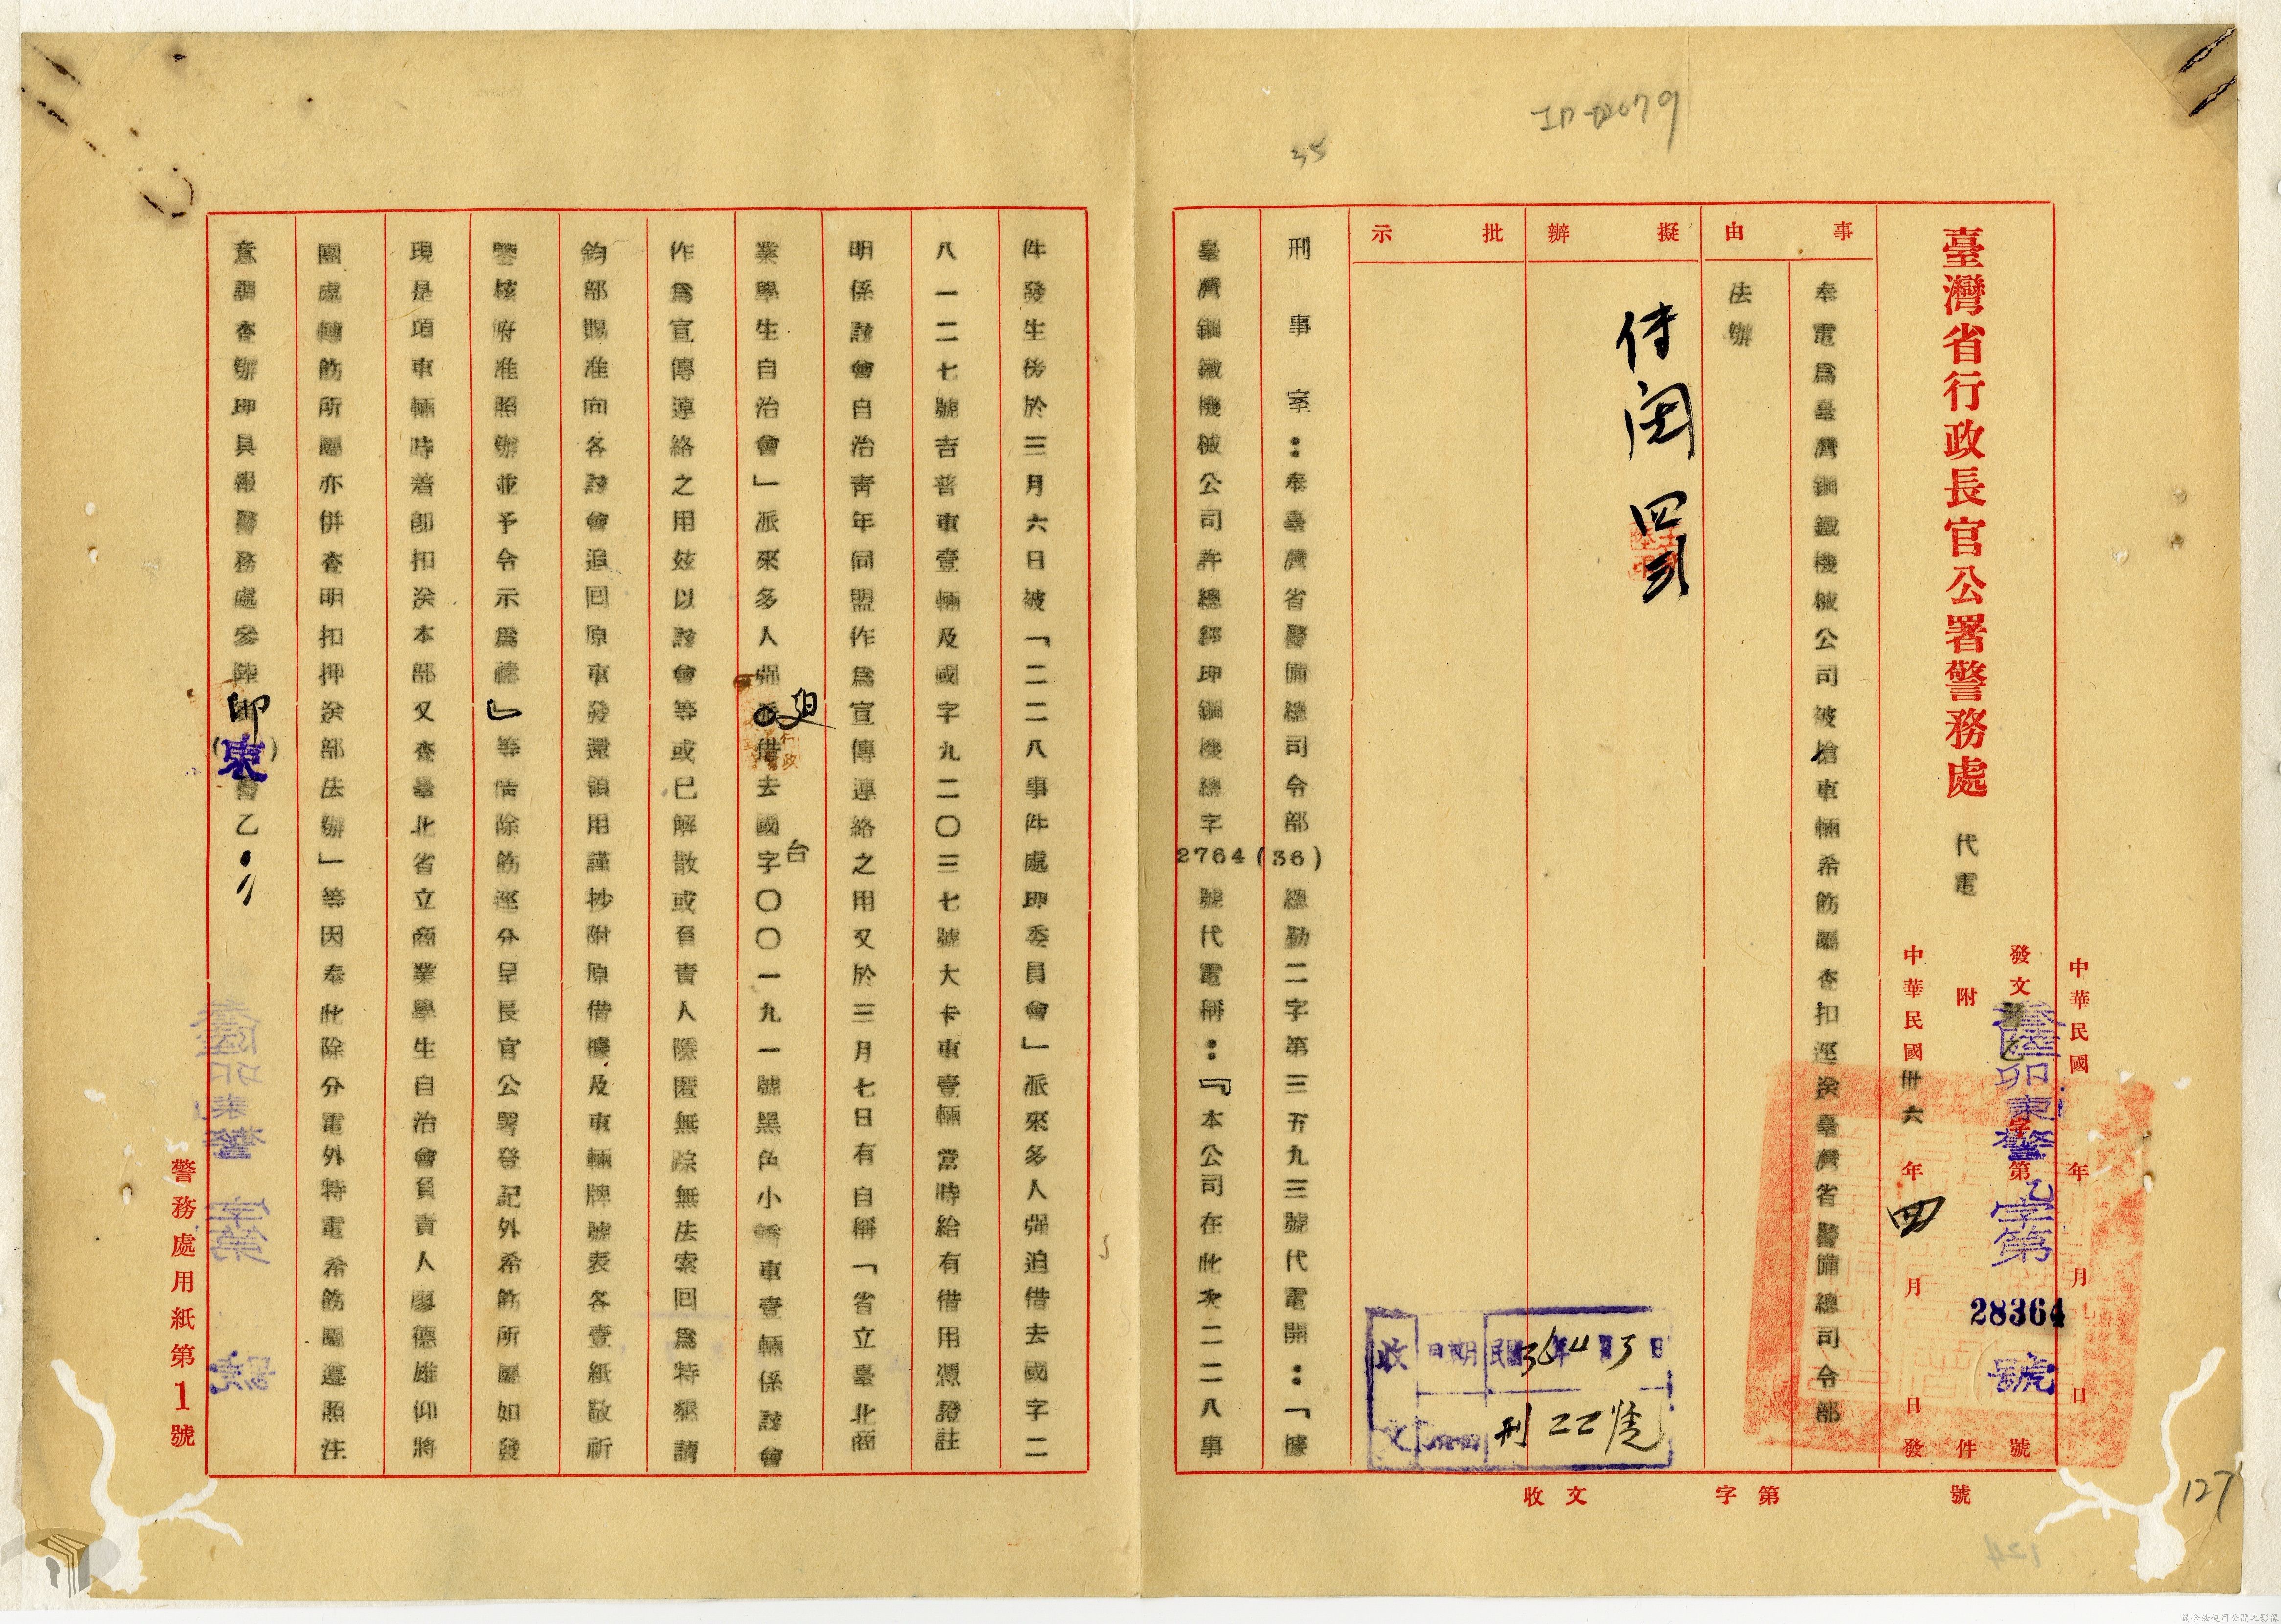 ID-D2079
35
臺灣省行政長官公署警務處 代電
中華民國 年 月 日
發文 警乙字第 號
參陸卯東警乙字第 28364 號
附 件
中華民國卅六年四月 日發
事由
奉電為臺灣鋼鐵機械公司被搶車輛希筋屬查扣逕送臺灣省警備總司令部
法辦
擬辦
存閱 四
批示
收 日期 民36年4月3日
文 刑22號
刑事室:奉臺灣省警備總司令部(36)總勤二字第三五九三號代電開:「據
臺灣鋼鐵機械公司許總經理鋼機總字2764號代電稱:『本公司在此次二二八事
件發生後於三月六日被「二二八事件處理委員會」派來多人強迫借去國字二
八一二七號吉普車壹輛及國字九二〇三七號大卡車壹輛當時給有借用憑證註
明係該會自治青年同盟作為宣傳連絡之用又於三月七日有自稱「省立臺北商
業學生自治會」派來多人強迫借去國台字〇〇一九一號黑色小轎車壹輛係該會
作為宣傳連絡之用茲以該會等或已解散或負責人隱匿無踪無法索回為特懇請
鈞部賜准向各該會追回原車發還領用謹抄附原借據及車輛牌號表各壹紙敬祈
鑒核府准照辦並予令示為禱』等情除筋逕分呈長官公署登記外希筋所屬如發
現是項車輛時着卽扣送本部又查臺北省立商業學生自治會負責人廖德雄仰將
團處轉筋所屬亦併查明扣押送部法辦」等因奉此除分電外特電希筋屬遵照注
意調查辦理具報警務處參陸卯(東)警乙
警務處用紙第1號
收文 字第 號
127
124
請合法使用公開之影像